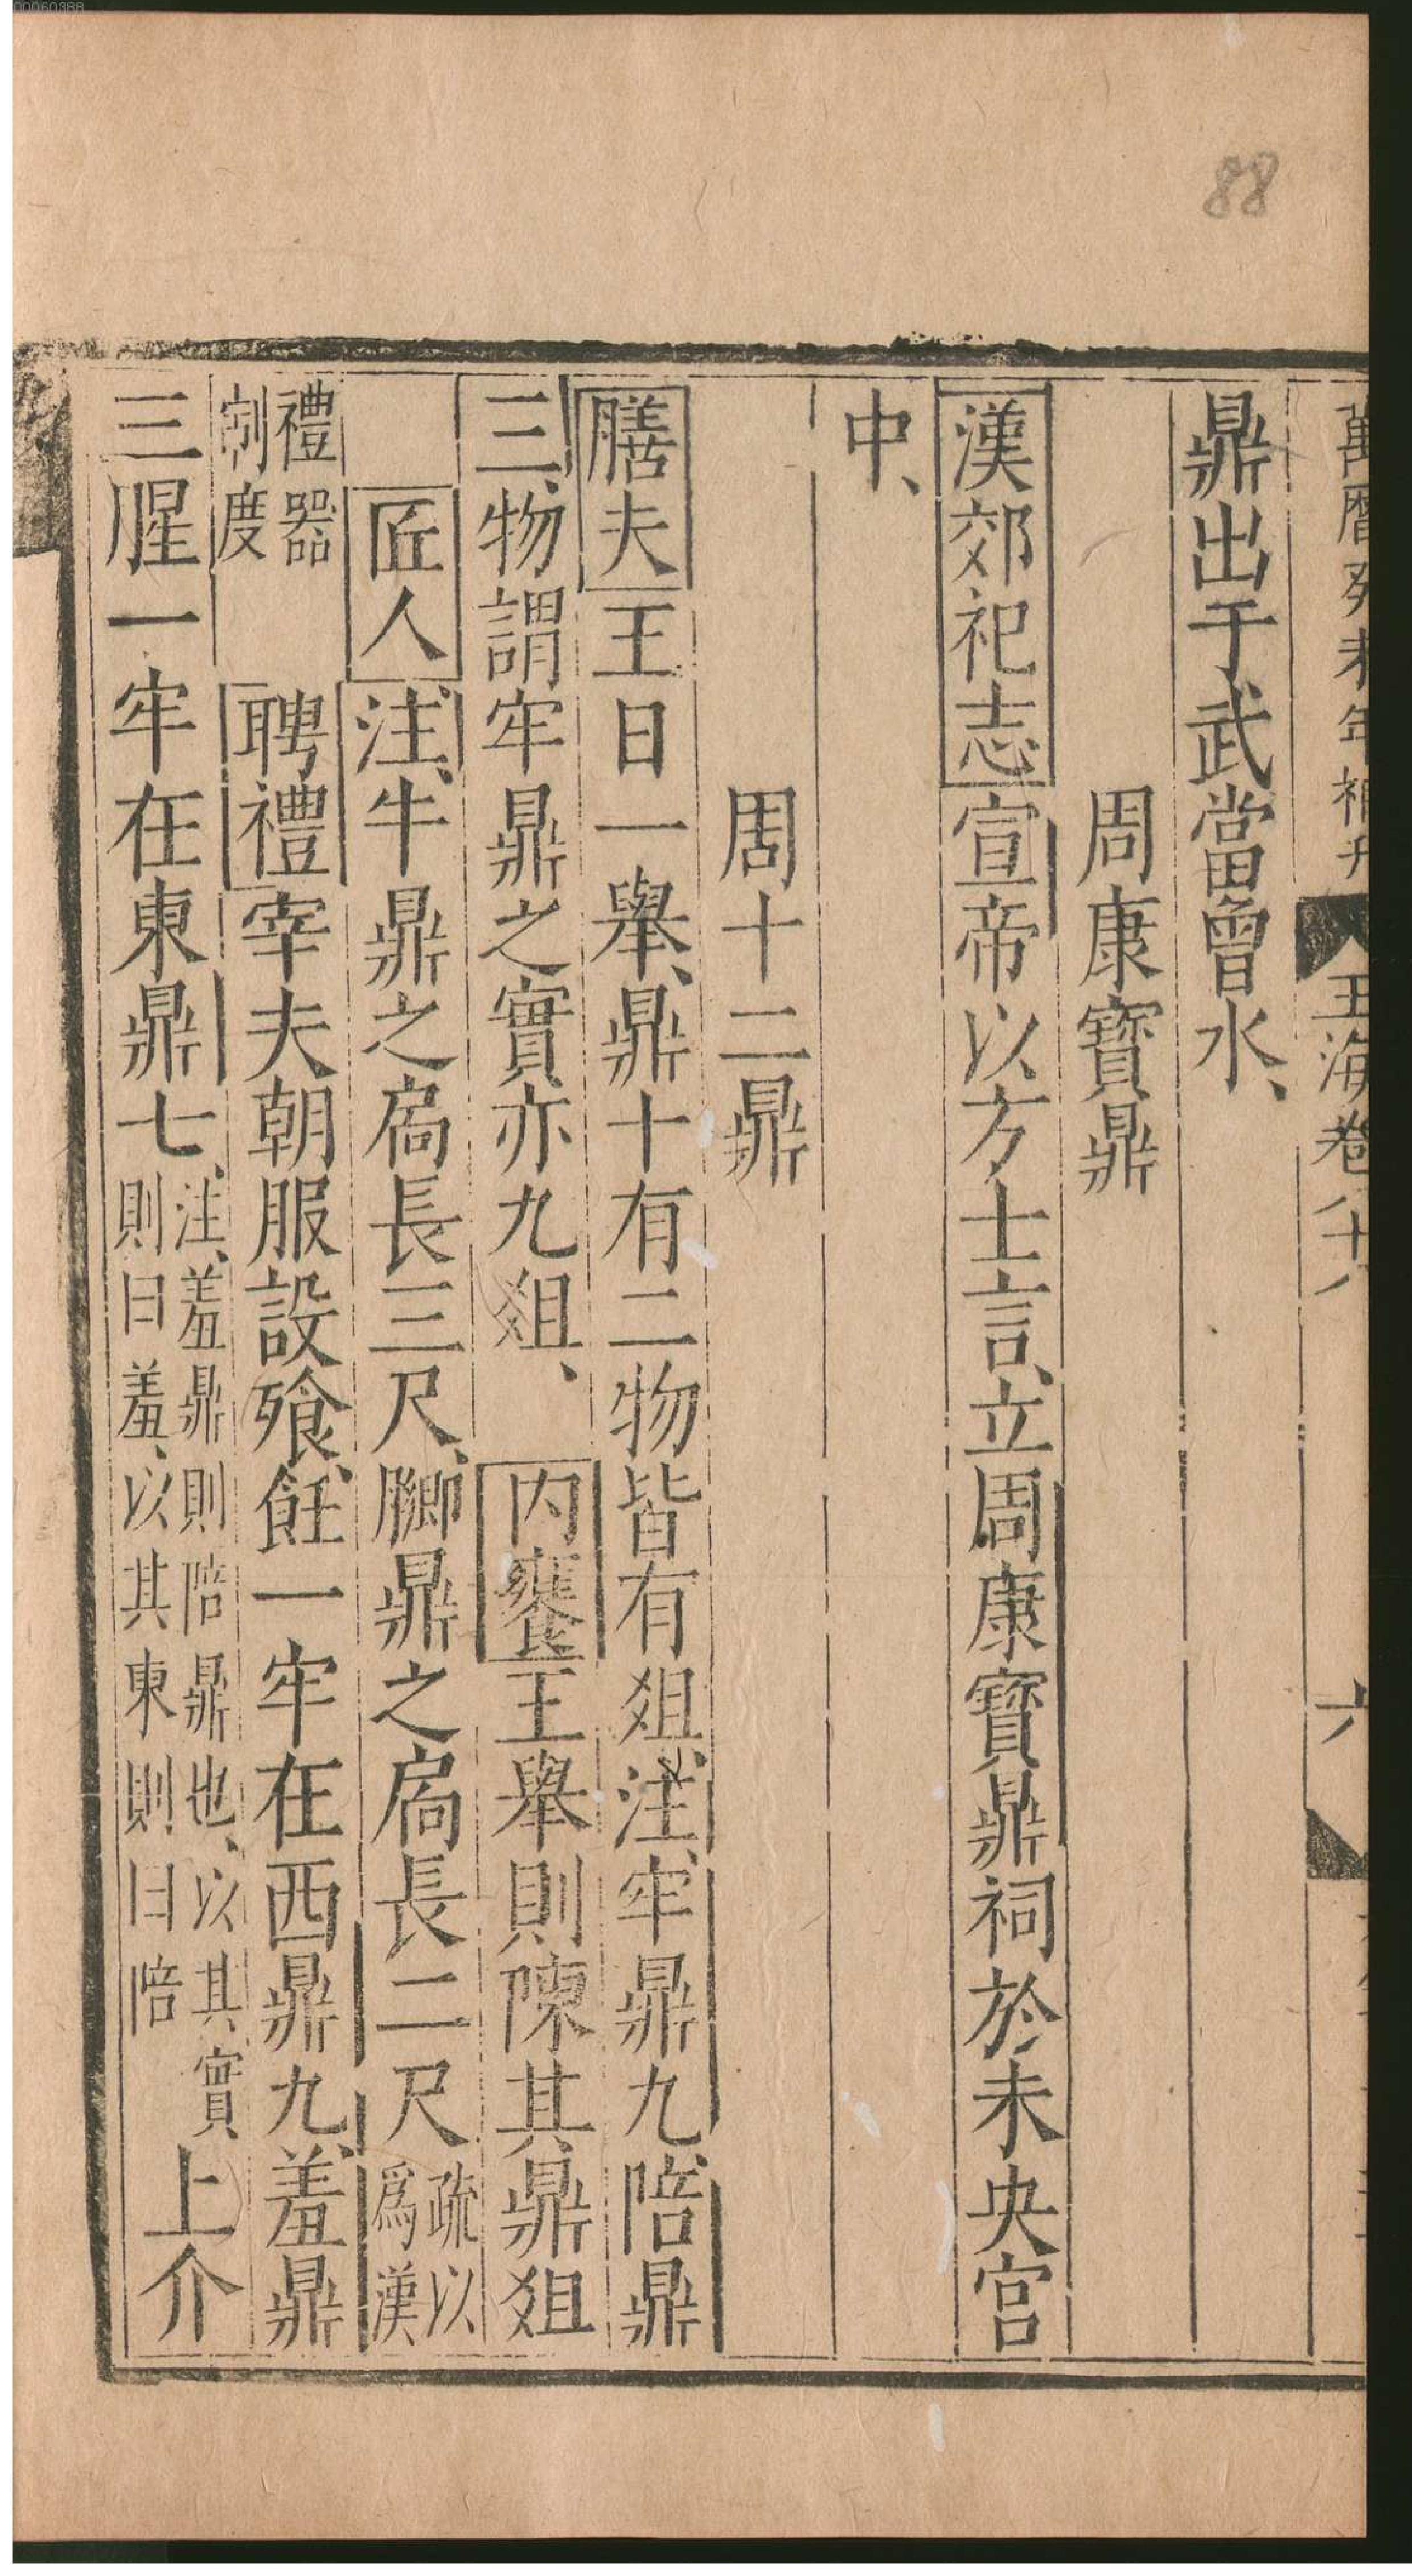 00060388
88
萬曆癸未年補刊 玉海卷八十八 六
鼎出于武當曾水、
周康寶鼎
漢郊祀志宣帝以方士言、立周康寶鼎祠於未央宮
中、
周十二鼎
膳夫王日一舉、鼎十有二物皆有俎、注、牢鼎九、陪鼎
三、物謂牢鼎之實亦九俎、 内饔王舉則陳其鼎俎
匠人注、牛鼎之扃長三尺、膷鼎之扃長二尺疏以
爲漢
禮器
制度 聘禮宰夫朝服設飧、飪一牢在西鼎九、羞鼎
三腥一牢在東鼎七、注、羞鼎則陪鼎也、以其實
則曰羞、以其東則曰陪 上介